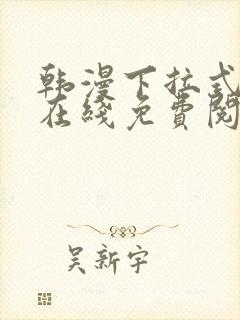 韩漫下拉式
在线免費阅
吴新宇